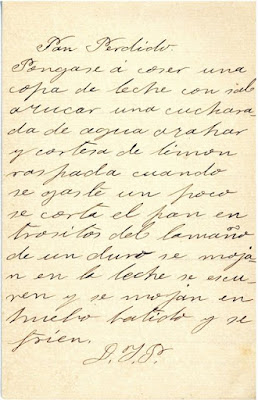 Pan Perdido.
Pongase á coser una
copa de leche con sal
azucar una cuchara-
da de agua azahar
y cortesa de limon
raspada cuando
se gaste un poco
se corta el pan en
trositos del lamaño
de un duro se moja
n en la leche se escu
ren y se mojan en
huebo batido y se
frien.